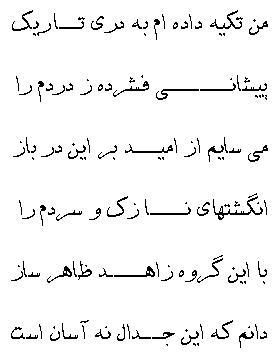 من تکیه داده ام به دری تاریک
پیشانی فشرده ز دردم را
می سایم از امید بر این در باز
انگشتهای نازک و سردم را
با این گروه زاهد ظاهر ساز
دانم که این جدال نه آسان است